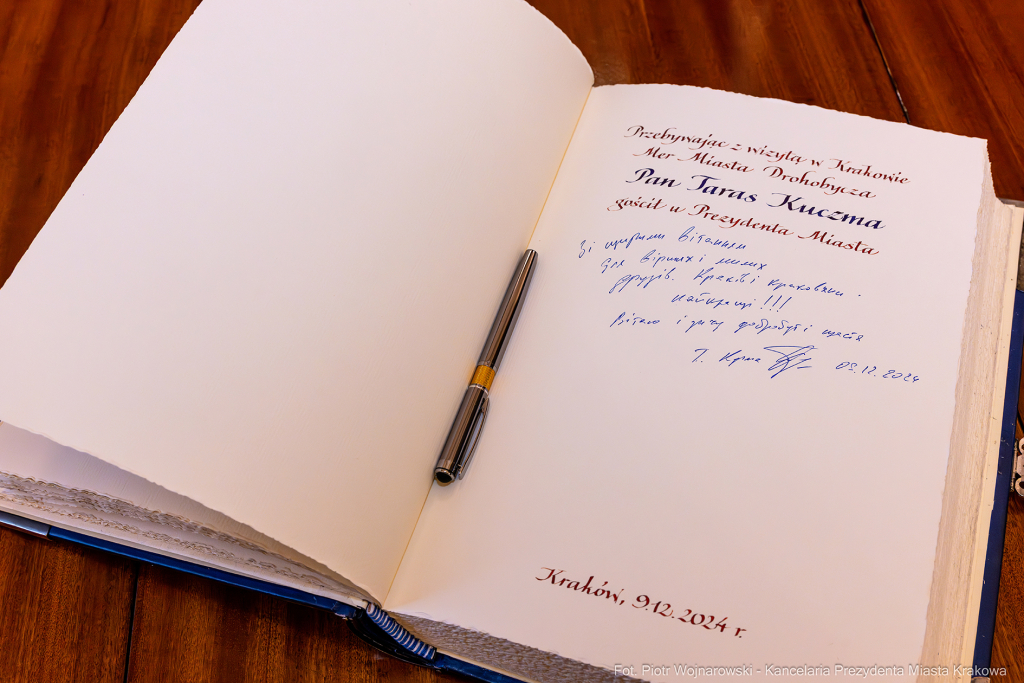 Przebywając z wizytą w Krakowie
Mer Miasta Drohobycza
Pan Taras Kuczma
gościł u Prezydenta Miasta
Зі щирими вітаннями
для вірних і милих
друзів. Краків і краков'яни -
найкращі!!!
Вітаю і зичу добробуту і щастя
Т. Кучма 09.12.2024
Kraków, 9.12.2024 r.
Fot. Piotr Wojnarowski - Kancelaria Prezydenta Miasta Krakowa